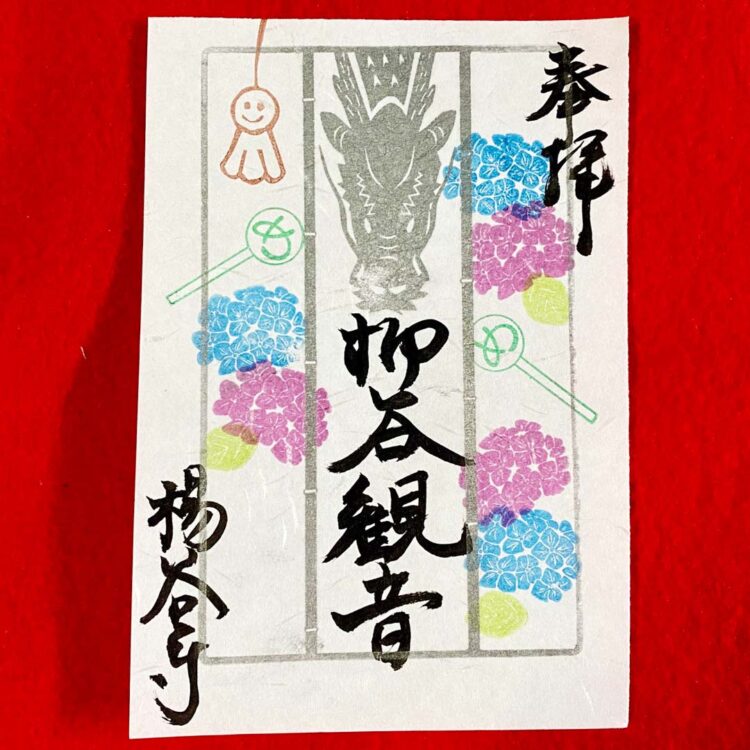 奉拝
め
め
柳谷観音
楊谷寺